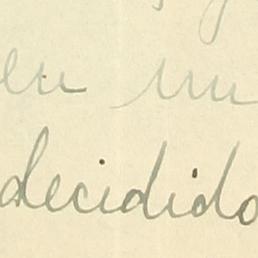 en un
decidido